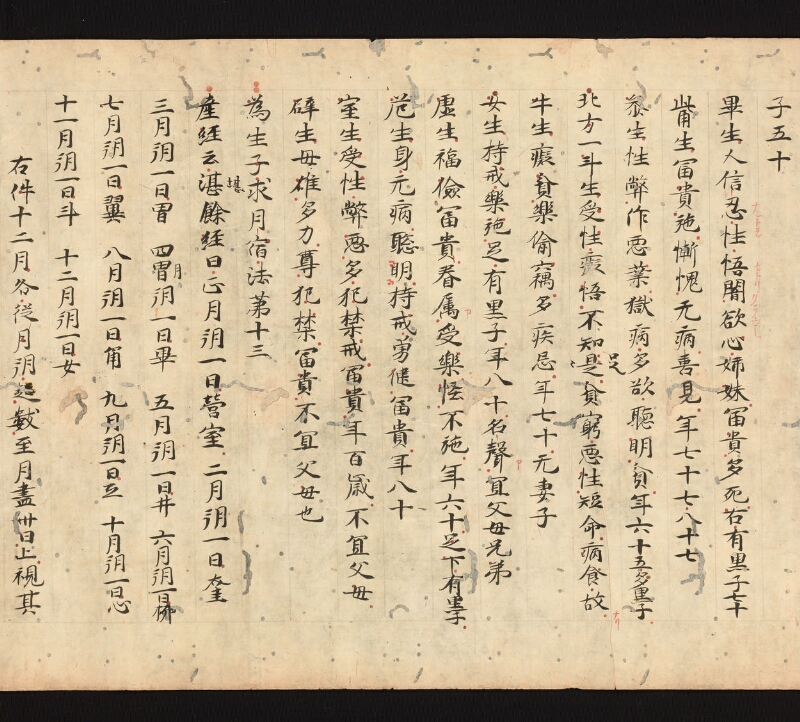 子五十
畢生人信忍性悟闇欲心姉妹冨貴多死右有黒子七十
觜生冨貴施慚愧无病善見年七十七八十七
参生性弊作悪業獄病多欲聡明貧年六十五多黒子
北方一斗生受性癡悟不知是貧窮悪性短命病食故
牛生癡貧樂偷竊多疾忌年七十无妻子
女生持戒樂施足有黒子年八十名聲宜父母兄弟
虚生福儉冨貴眷属受樂怪不施年六十足下有黒子
危生身无病聡明持戒勇健冨貴年八十
室生受性弊悪多犯禁戒冨貴年百歳不宜父母
辟生母雄多力尊犯禁冨貴不宜父母也
為生子求月宿法第十三
産經云湛餘經曰正月朔一日營室 二月朔一日奎
三月朔一日胃 四月朔一日畢 五月朔一日井 六月朔一日柳
七月朔一日翼 八月朔一日角 九月朔一日互 十月朔一日心
十一月朔一日斗 十二月朔一日女
右件十二月各從月朔起數至月盡卅日止視其